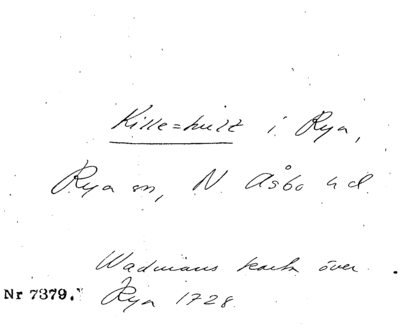 Kille=hult i Rya,
Rya sn, N. Åsbo hd.
Wadmans karta över
Nr 7379. Rya 1728.